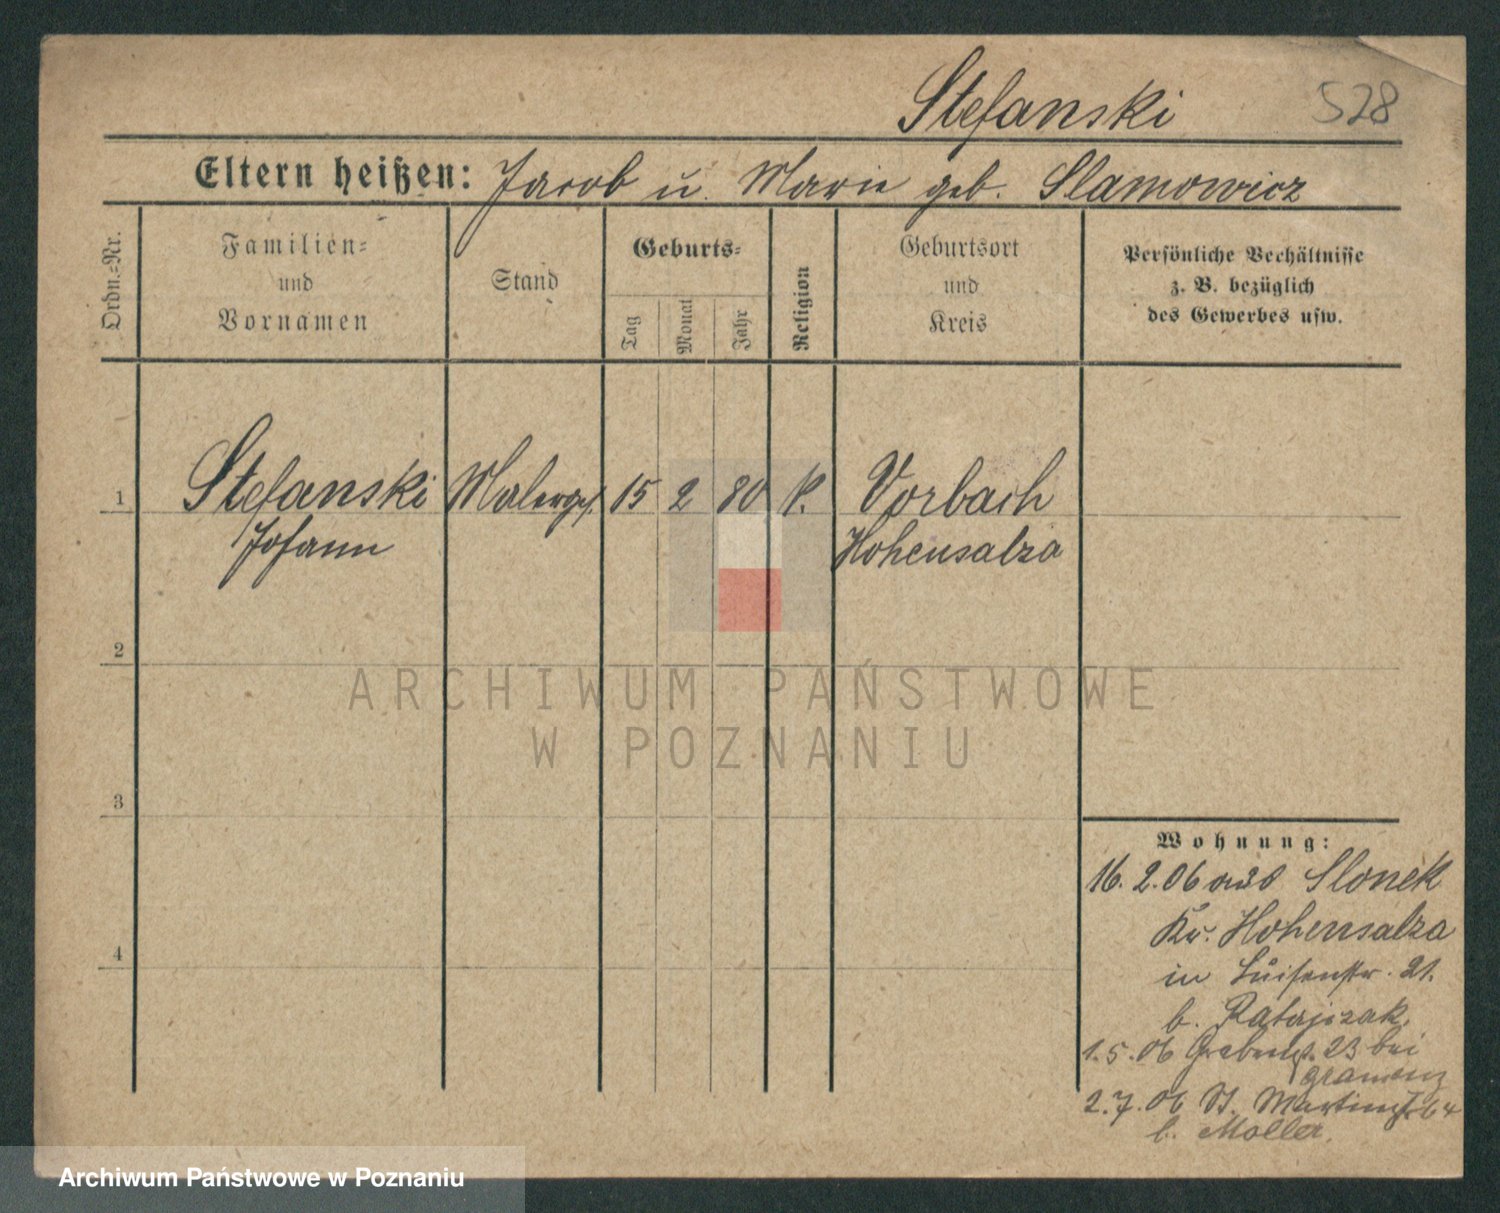 Stefanski
528
Eltern heißen: Jacob u. Marie geb. Slamowicz
Ordn.=Nr.
Familien=
und
Vornamen
Stand
Geburts=
Tag
Monat
Jahr
Religion
Geburtsort
und
Kreis
Persönliche Verhältnisse
z. B. bezüglich
des Gewerbes usw.
1
Stefanski Malerges. 15 2 80 k. Vorbach
Johann Hohensalza
2
ARCHIWUM PAŃSTWOWE
W POZNANIU
3
Wohnung:
16. 2. 06 aus Slonek
Kr. Hohensalza
in Luisenstr. 21.
b. Ratajczak.
4
1. 5. 06 23 bei
2. 7. 06 St. Martinstr. 64
b. Moller.
Archiwum Państwowe w Poznaniu